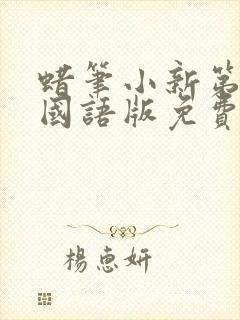 蜡筆小新第
國語版免費
楊惠妍